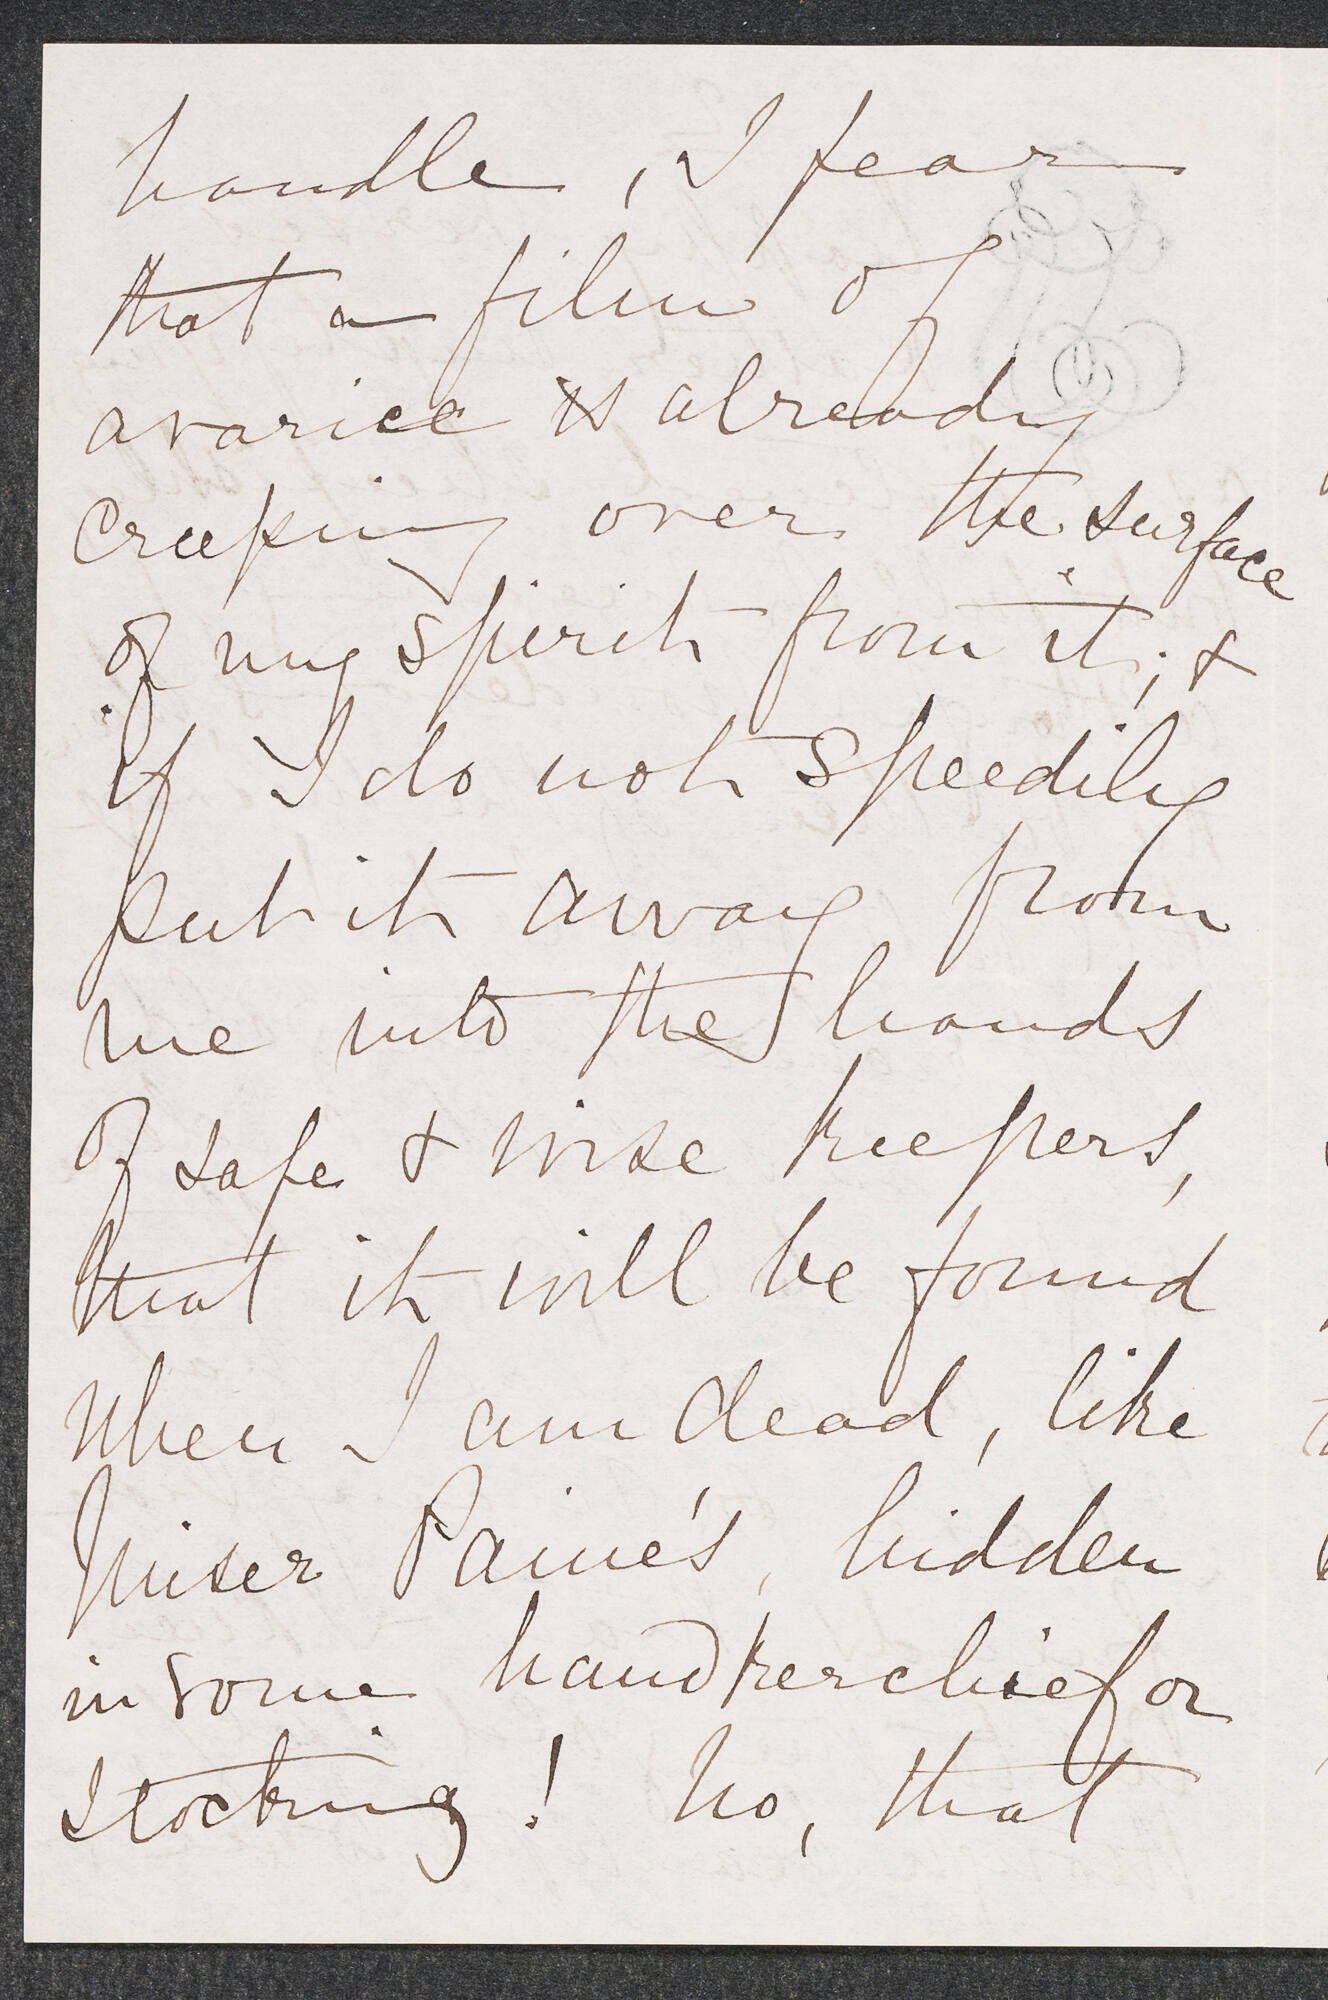 handle, I fear
that a film of
avarice is already
creeping over the surface
of my spirit from it; &
if I do not speedily
put it away from
me into the hands
of safe & wise keepers,
that it will be found
when I am dead, like
Miser Paine's, hidden
in some handkerchief or
stocking! No, that